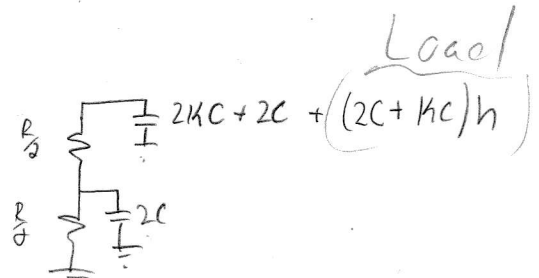 Load
R/2
2KC + 2C + (2C + KC)h
R/2
2C